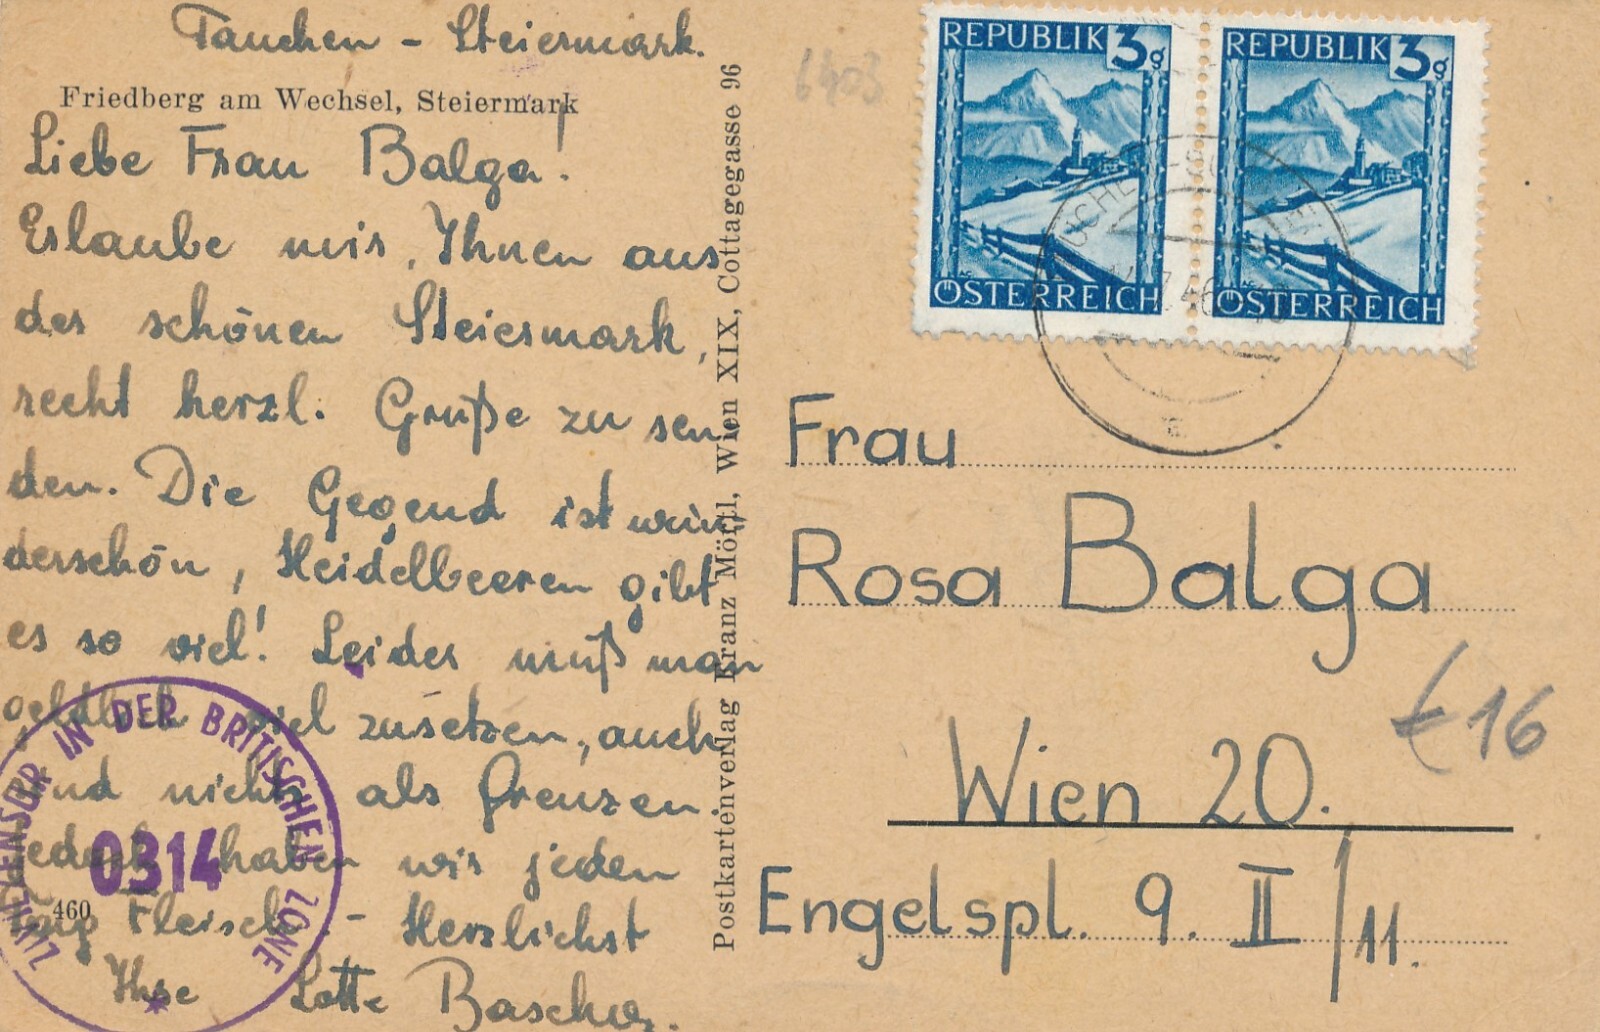 Tauchen - Steiermark.
Friedberg am Wechsel, Steiermark
Liebe Frau Balga!
Erlaube mir, Ihnen aus
der schönen Steiermark,
recht herzl. Grüße zu sen
den. Die Gegend ist wun
derschön, Heidelbeeren gibt
es so viel! Leider muß man
geldlich viel zusetzen, auch
sind nicht als Grenzen
jedoch haben wir jeden
Tag Fleisch. - Herzlichst
Ihre Lotte
460
ZIVILZENSUR IN DER BRITISCHEN ZONE
0314
Postkartenverlag Franz Mörtl, Wien XIX, Cottagegasse 96
6403
REPUBLIK 3g
ÖSTERREICH
REPUBLIK 3g
ÖSTERREICH
Frau
Rosa Balga
Wien 20.
Engelspl. 9. II/11.
€16